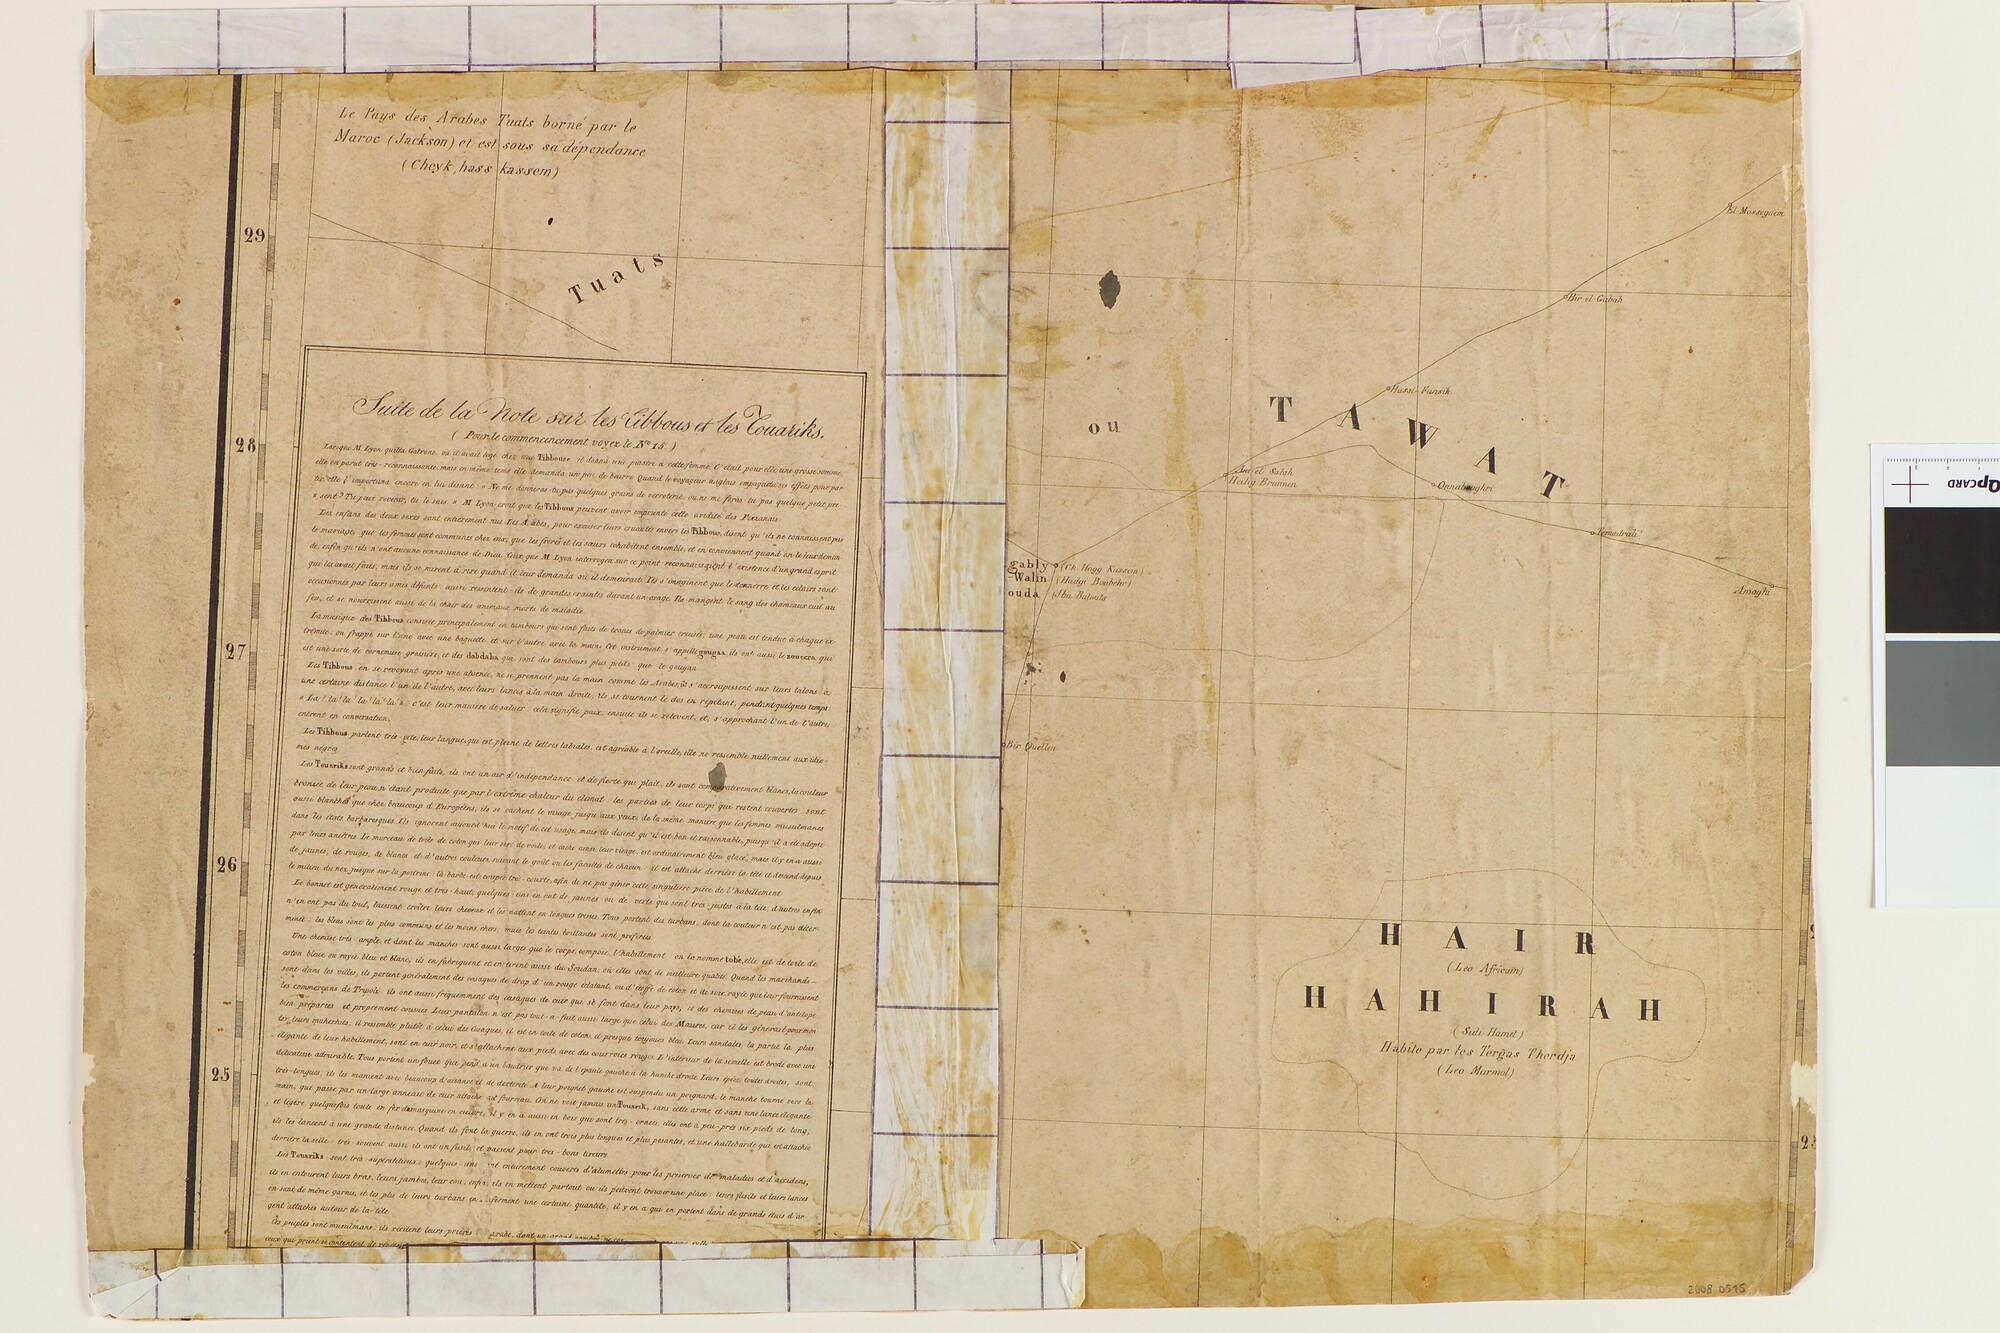 Le Pays des Arabes Tuats borné par le
Maroc (Jackson) et est sous sa dépendance
(Cheyk, hass kassem)
29
Tuats
28
27
26
25
Suite de la Note sur les Tibbous et les Touariks.
( Pour le commencencement voyez le Nº 15. )
Lorsque M. Lyon quitta Gatrone, où il avait logé chez une Tibbouse il donna une piastre à cette femme. C'était pour elle une grosse somme
elle en parut très-reconnaissante, mais en même tems elle demanda un peu de beurre Quand le voyageur anglais empaqueta ses effets pour par
tir, elle l'importuna encore en lui disant: » Ne me donneras-tu pas quelques grains de verroterie, ou ne me feras-tu pas quelque petit pré
» sent? Tu peux revenir, tu le sais. » M. Lyon croit que les Tibbous peuvent avoir emprunté cette avidité des Fezzanais
Les enfans des deux sexes sont entièrement nus Les Arabes, pour excuser leurs cruautés envers les Tibbous, disent qu'ils ne connaissent pas
le mariage, que les femmes sont communes chez eux; que les frères et les sœurs cohabitent ensemble, et en conviennent quand on le leur deman
de; enfin qu'ils n'ont aucune connaissance de Dieu. Ceux que M. Lyon interrogea sur ce point reconnaissaient l'existence d'un grand esprit
qui les avait faits, mais ils se mirent à rire quand il leur demanda où il demeurait. Ils s'imaginent que le tonnerre et les éclairs sont
occasionnés par leurs amis défunts aussi ressentent-ils de grandes craintes durant un orage. Ils mangent le sang des chameaux cuit au
feu, et se nourrissent aussi de la chair des animaux morts de maladie.
La musique des Tibbous consiste principalement en tambours qui sont faits de troncs de palmier creusés, une peau est tendue à chaque ex
trémité, on frappe sur l'une avec une baguette et sur l'autre avec la main. Cet instrument s'appelle gougaa ils ont aussi le zouccra qui
est une sorte de cornemuse grossière, et des dabdaba qui sont des tambours plus petits que le gougaa
Les Tibbous en se revoyant après une absence, ne se prennent pas la main comme les Arabes, ils s'accroupissent sur leurs talons à
une certaine distance l'un de l'autre, avec leurs lances à la main droite, ils se tournent le dos en répétant, pendant quelques temps
« La! la! la! la! la! ». c'est leur manière de saluer: cela signifie paix, ensuite ils se relèvent, et, s'approchant l'un de l'autre,
entrent en conversation.
Les Tibbous parlent très-vite, leur langue, qui est pleine de lettres labiales, est agréable à l'oreille, elle ne ressemble nullement aux idio-
mes nègres
Les Touariks sont grands et bien faits, ils ont un air d'indépendance et de fierté qui plaît, ils sont comparativement blancs, la couleur
bronzée de leur peau n'étant produite que par l'extrême chaleur du climat les parties de leur corps qui restent couvertes sont
aussi blanches que chez beaucoup d'Européens, ils se cachent le visage jusqu'aux yeux, de la même manière que les femmes musulmanes
dans les états barbaresques. Ils ignorent aujourd'hui le motif de cet usage, mais ils disent qu'il est bon et raisonnable, puisqu'il a été adopté
par leurs ancêtres. Le morceau de toile de coton qui leur sert de voile, et cache ainsi leur visage, est ordinairement bleu glacé, mais il y en a aussi
de jaunes, de rouges, de blancs et d'autres couleurs, suivant le goût ou les facultés de chacun: il est attaché derrière la tête et descend depuis
le milieu du nez jusque sur la poitrine: la barbe est coupée très-courte, afin de ne pas gêner cette singulière pièce de l'habillement
Le bonnet est généralement rouge et très-haut, quelques-uns en ont de jaunes ou de verts qui sont très-justes à la tête, d'autres enfin
n'en ont pas du tout, laissent croître leurs cheveux et les nattent en longues tresses. Tous portent des turbans, dont la couleur n'est pas déter-
minée: les bleus sont les plus communs et les moins chers, mais les teintes brillantes sont préférées
Une chemise très-ample, et dont les manches sont aussi larges que le corps, compose l'habillement on la nomme tobe, elle est de toile de
coton bleue ou rayée bleu et blanc, ils en fabriquent et en tirent aussi du Soudan, où elles sont de meilleure qualité. Quand les marchands
sont dans les villes, ils portent généralement des casaques de drap d'un rouge éclatant, ou d'étoffe de coton et de soie rayée que leur fournissent
les commerçans de Tripoli ils ont aussi fréquemment des casaques de cuir qui se font dans leur pays, et des chemises de peau d'antilope
bien préparées et proprement cousues. Leur pantalon n'est pas tout-à-fait aussi large que celui des Maures, car il les gênerait pour mon
ter leurs maherhis; il ressemble plutôt à celui des Cosaques, il est en toile de coton, et presque toujours bleu. Leurs sandales, la partie la plus
élégante de leur habillement, sont en cuir noir, et s'attachent aux pieds avec des courroies rouges L'intérieur de la semelle est brodé avec une
délicatesse admirable. Tous portent un fouet qui pend à un baudrier que va de l'épaule gauche à la hanche droite. Leurs épées, toutes droites, sont
très-longues, ils les manient avec beaucoup d'aisance et de dextérité A leur poignet gauche est suspendu un poignard, le manche tourné vers la
main, qui passe par un large anneau de cuir attaché au fourreau. On ne voit jamais un Touarik, sans cette arme et sans une lance élégante
et légère, quelquefois toute en fer damasquiné en cuivre, il y en a aussi en bois qui sont très-ornées, elles ont à peu-près six pieds de long,
ils les lancent à une grande distance. Quand ils font la guerre, ils en ont trois plus longues et plus pesantes, et une hallebarde qui est attachée
derrière la selle: très-souvent aussi ils ont un fusil, et passent pour très-bons tireurs.
Les Touariks sont très-superstitieux: quelques-uns entièrement couverts d'alumettes pour les préserver de maladies et d'accidens,
ils en entourent leurs bras, leurs jambes, leur cou, enfin, ils en mettent partout où ils peuvent trouver une place: leurs fusils et leurs lances
en sont de même garnis, et les plis de leurs turbans en forment une certaine quantité, il y en a qui en portent dans de grands étuis d'ar-
gent attachés autour de la tête.
Ces peuples sont musulmans; ils récitent leurs prières arabe, dont un grand nombre
ceux qui prient se contentent de
ou
TAWAT
El Mosseguem
Bir el Gabah
Hassi-Farsik
Ain el Salah
Heilig Brunnen
Onnaboughri
Temedrali
Amaghi
gably
Walin
ouda
(Ch. Hagg Kassem)
(Hadgi Boubekr)
(Ibn Batouta
Bir Quellen
HAIR
(Leo Africain)
HAHIRAH
(Sidi Hamel)
Habité par les Tergas Therdja
(Leo Marmol)
2008.0515
QPCARD